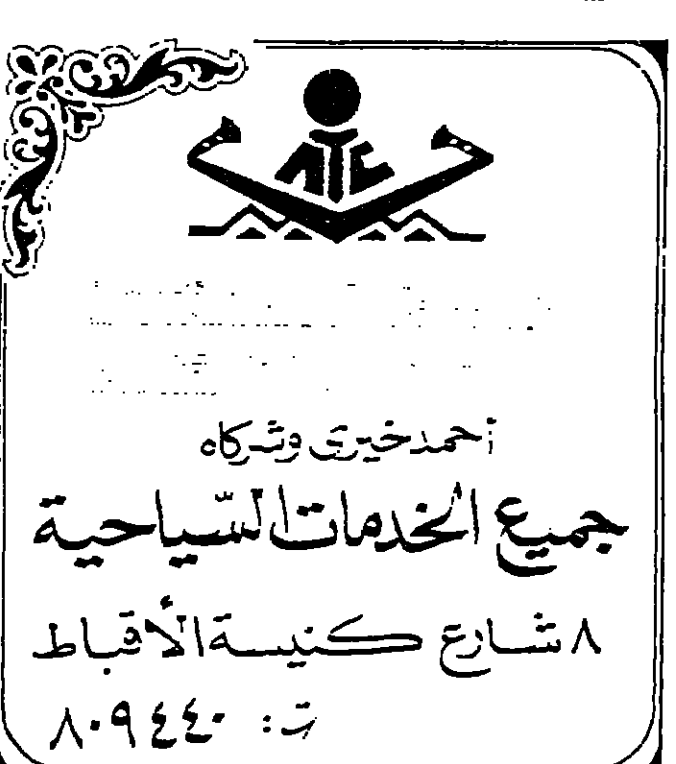 ATC
أحمد خيرى وشركاه
جميع الخدمات السياحية
٨ شارع كنيسة الأقباط
ت: ٨٠٩٤٤٠